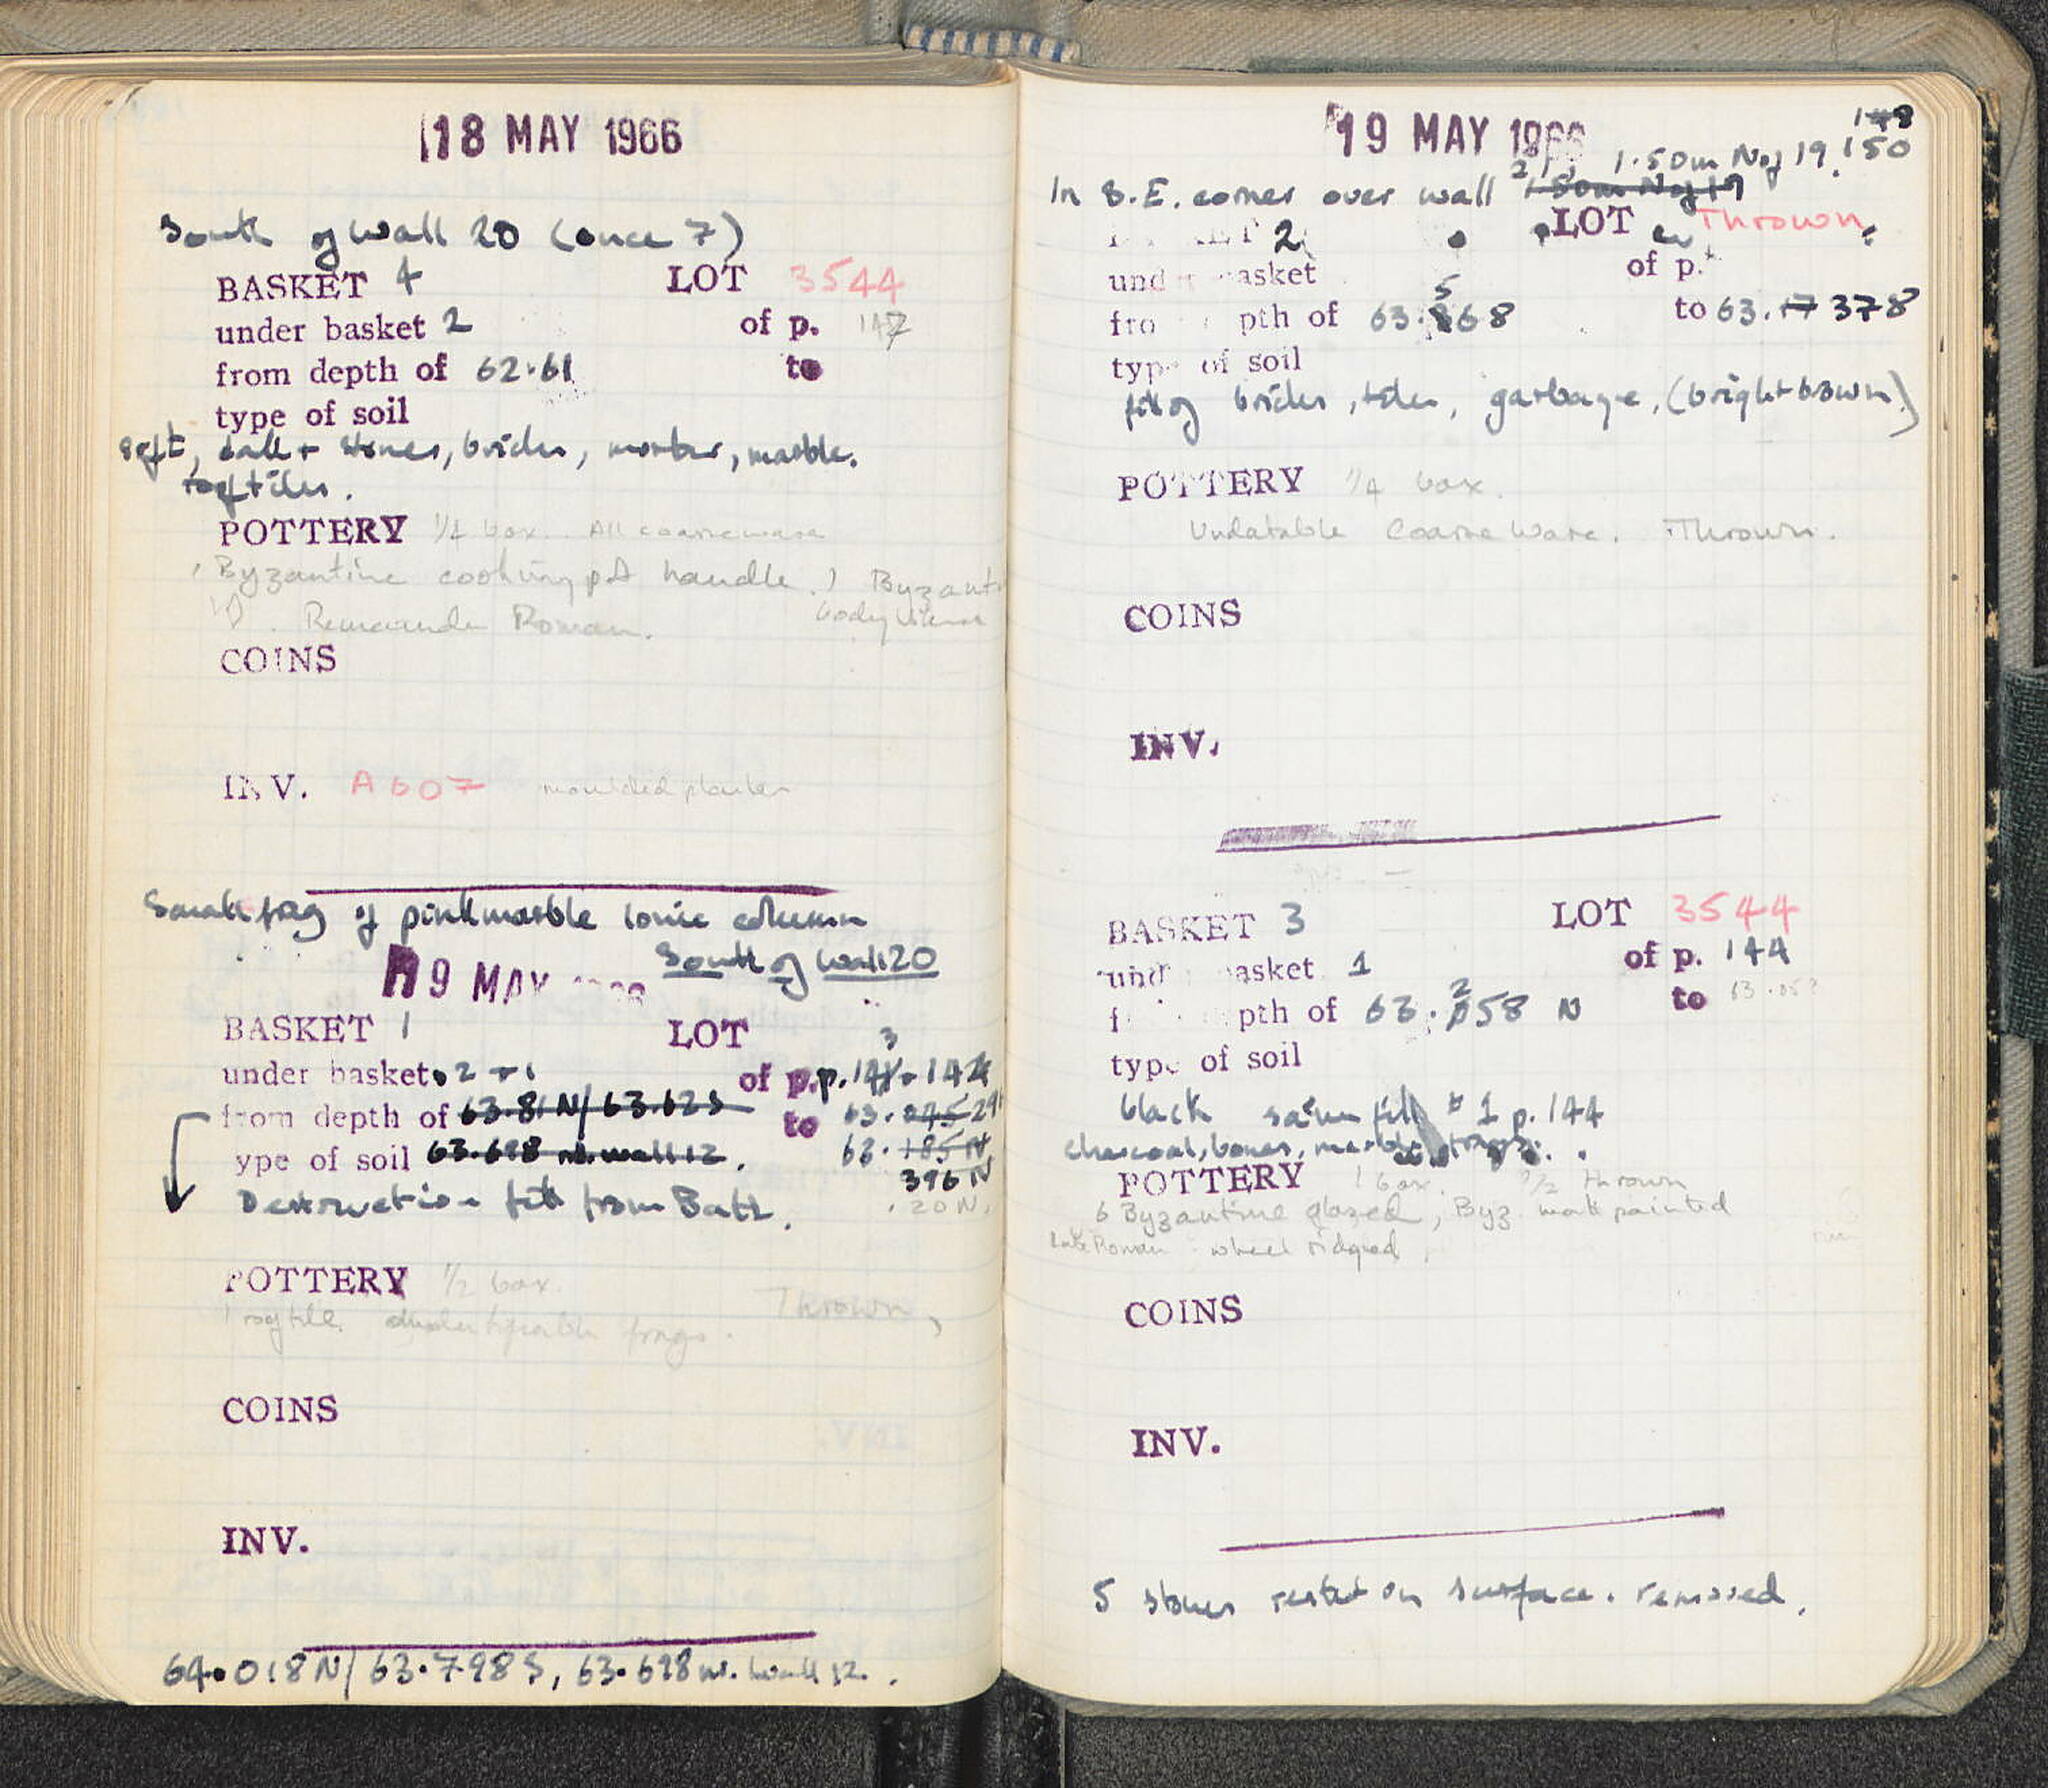 18 MAY 1966
South of Wall 20 (once 7)
BASKET 4 LOT 3544
under basket 2 of p. 147
from depth of 62.61 to
type of soil
soft, stones, bricks, mortar, marble.
rooftiles.
POTTERY 1/4 box. All coarseware
1 Byzantine cooking pot handle. Byzant
Remainder Roman. body
COINS
INV. A 607 moulded plaster
Small frag of pink marble Ionic column
South of Wall 20
19 MAY
BASKET 1 LOT
under basket 2 + 1 of p.p. 143-144
from depth of 63.81 N/63.62 S to 63.
type of soil 63.698 w. wall 12. 63.185 N
396 N
Destruction fill from Bath. .20 N.
POTTERY 1/2 box. Thrown,
1 rooftile frags.
COINS
INV.
64.018 N/63.798 S, 63.698 w. wall 12.
148
19 MAY 1966
1.50m N of 19. 150
In S.E. corner over wall 2 1.50m N of 19
BASKET 2 LOT Thrown
under basket of p.
from depth of 63.568 to 63.17 378
type of soil
fill of bricks, tiles, garbage, (bright brown)
POTTERY 1/4 box.
Undatable Coarse Ware. Thrown.
COINS
INV.
BASKET 3 LOT 3544
under basket 1 of p. 144
from depth of 63.258 N to 63.058
type of soil
black same fill # 1 p. 144
charcoal, bones, marble frags.
POTTERY 1 box. 1/2 thrown
6 Byzantine glazed, Byz. matt painted
Late Roman - wheel ridged
COINS
INV.
5 stones rested on surface. removed.